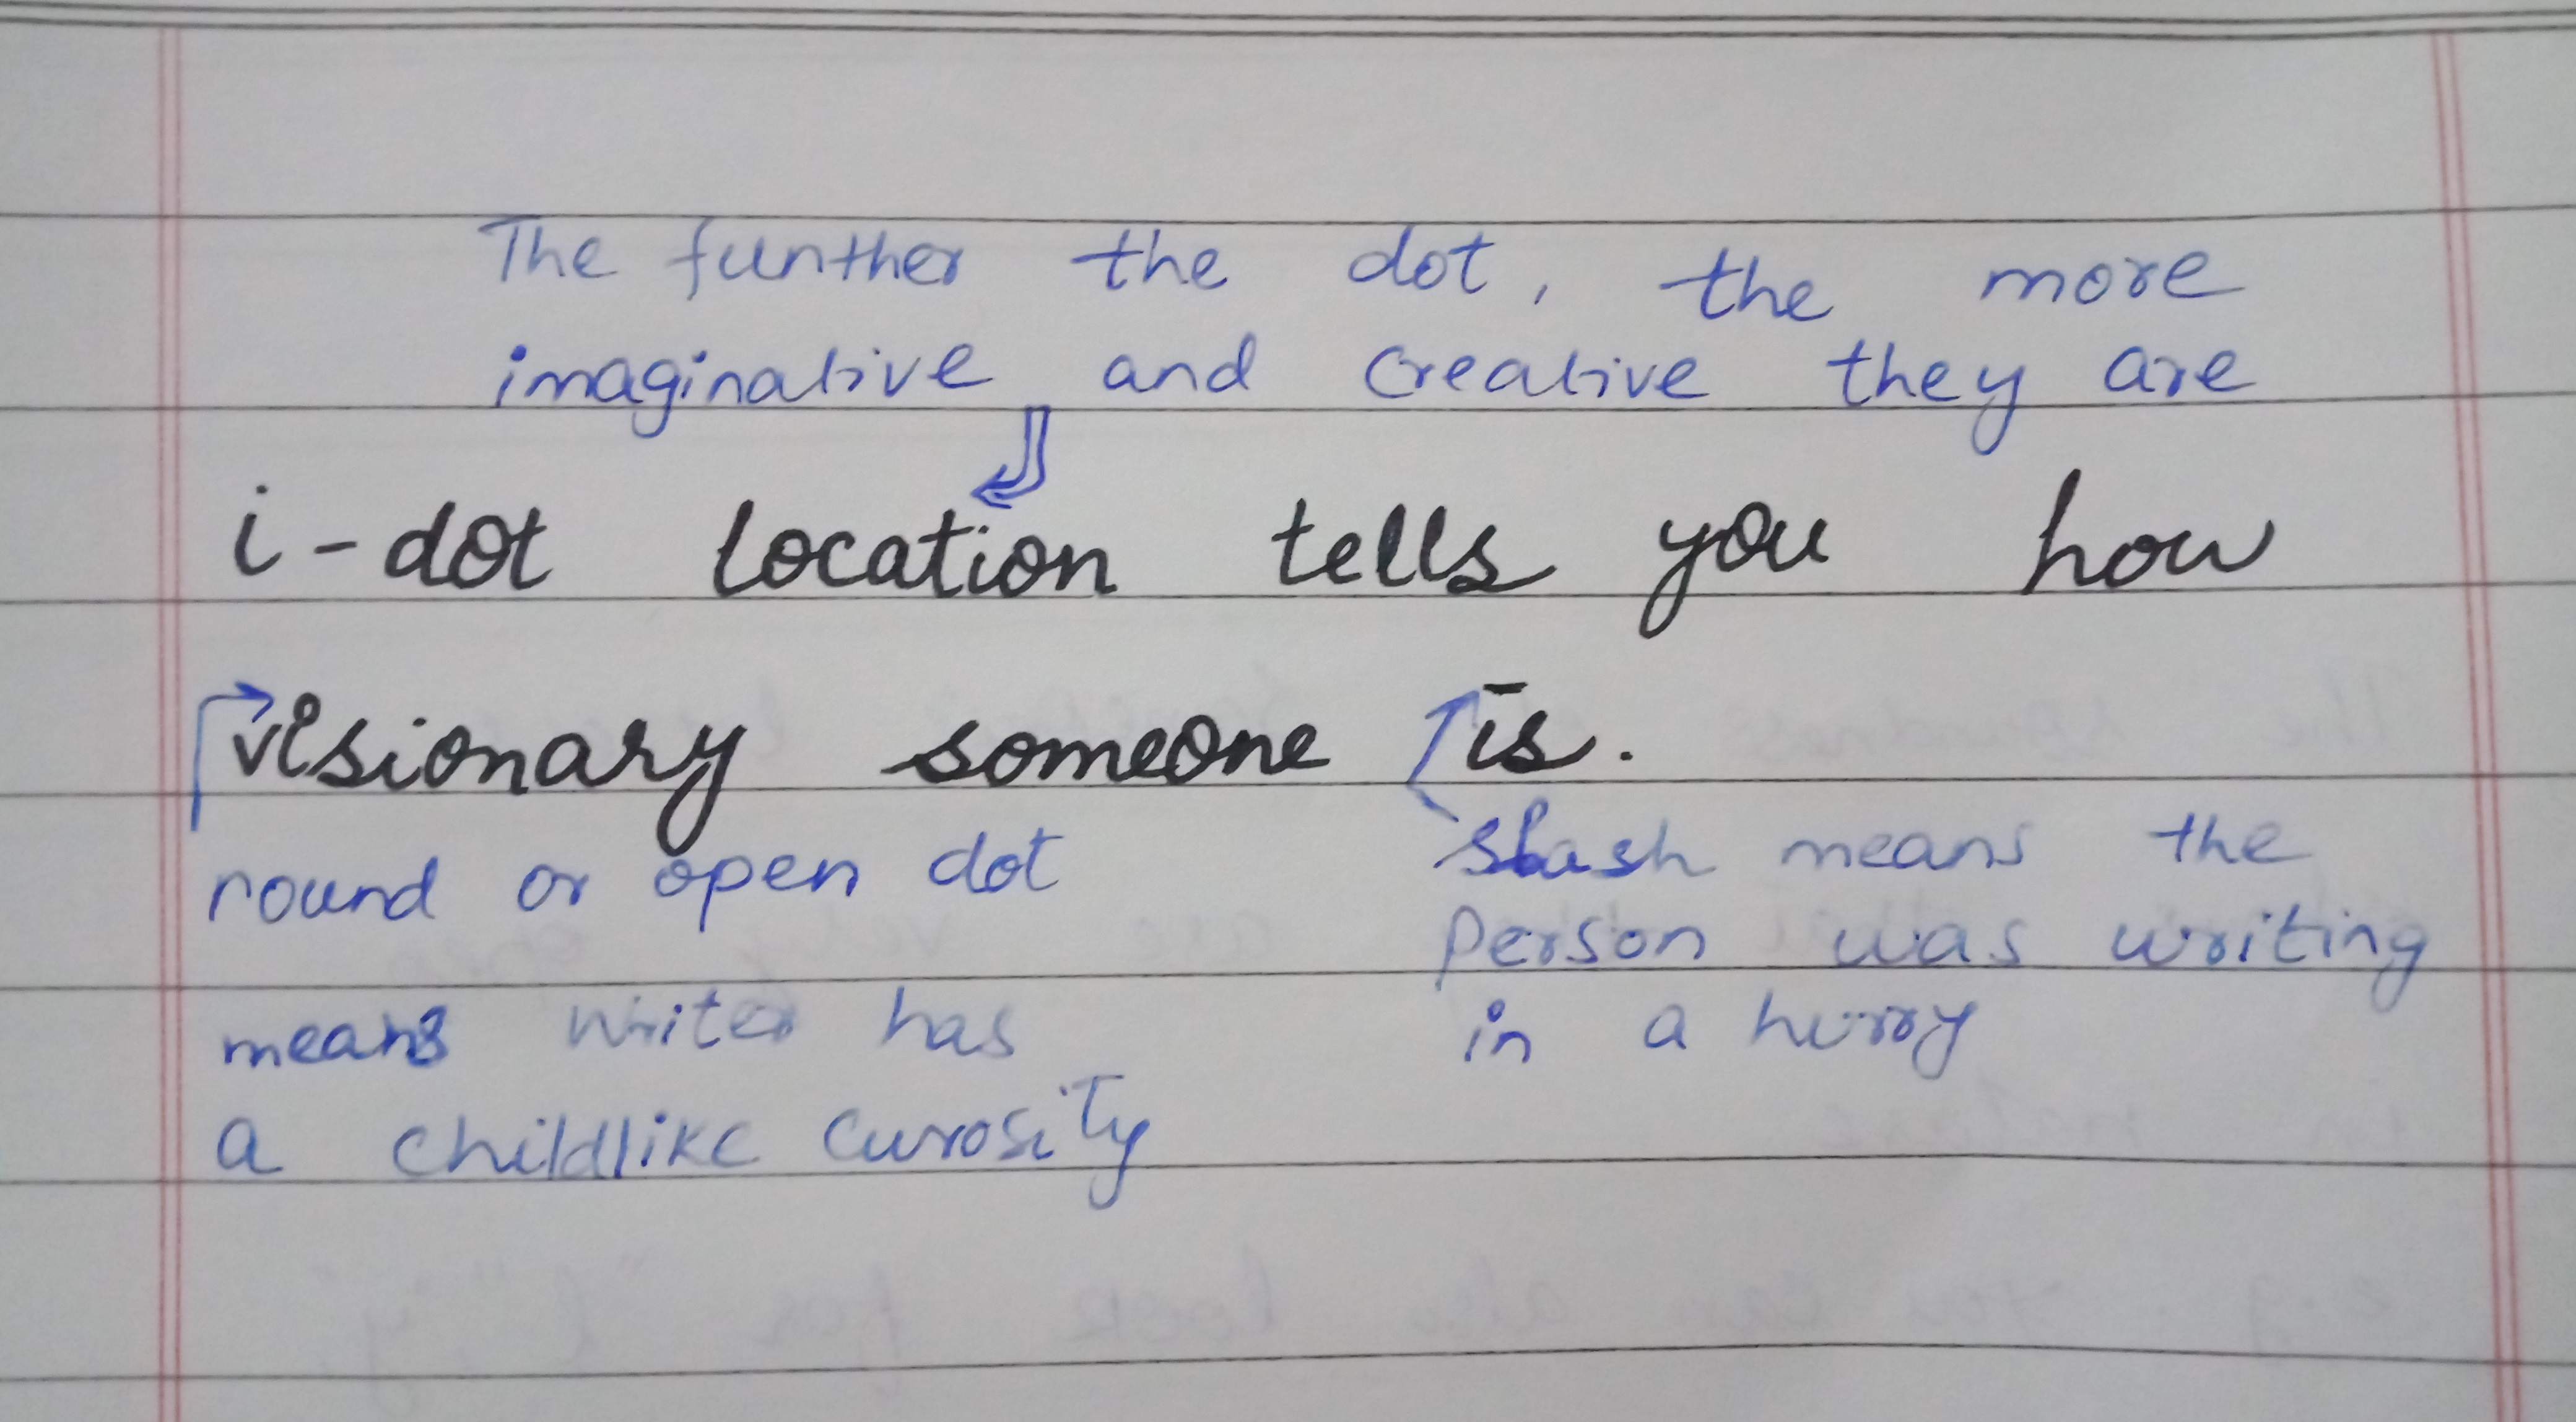 The further the dot, the more
imaginative and creative they are
i-dot location tells you how
visionary someone is.
round or open dot
means writer has
a childlike curosity
slash means the
person was writing
in a hurry